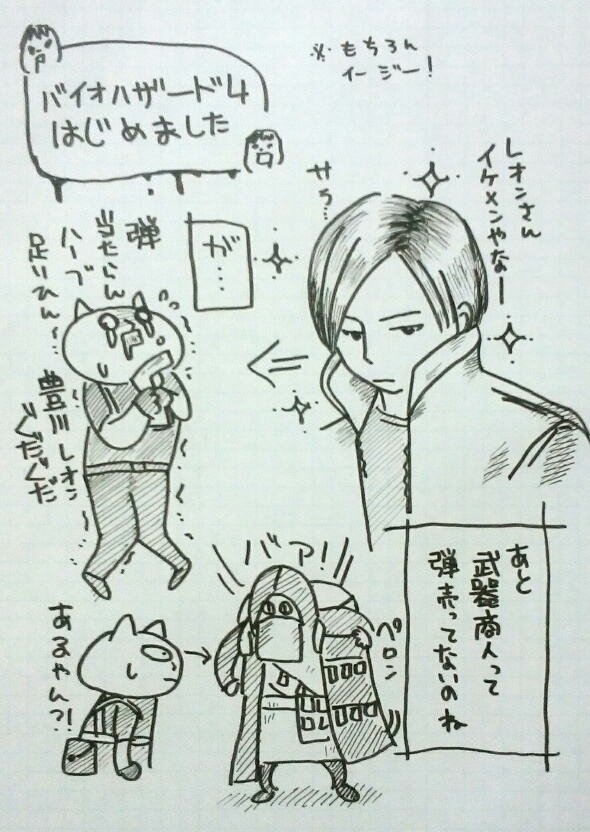 バイオハザード4
はじめました
※もちろん
イージー!
レオンさん
イケメンやなー
サラ…
が…
弾
当たらん
ハーブ
足りひん…
豊川レオン
ぐだぐだ
あと
武器商人って
弾売ってないのね
バァ!
ペロン
あるやん?!